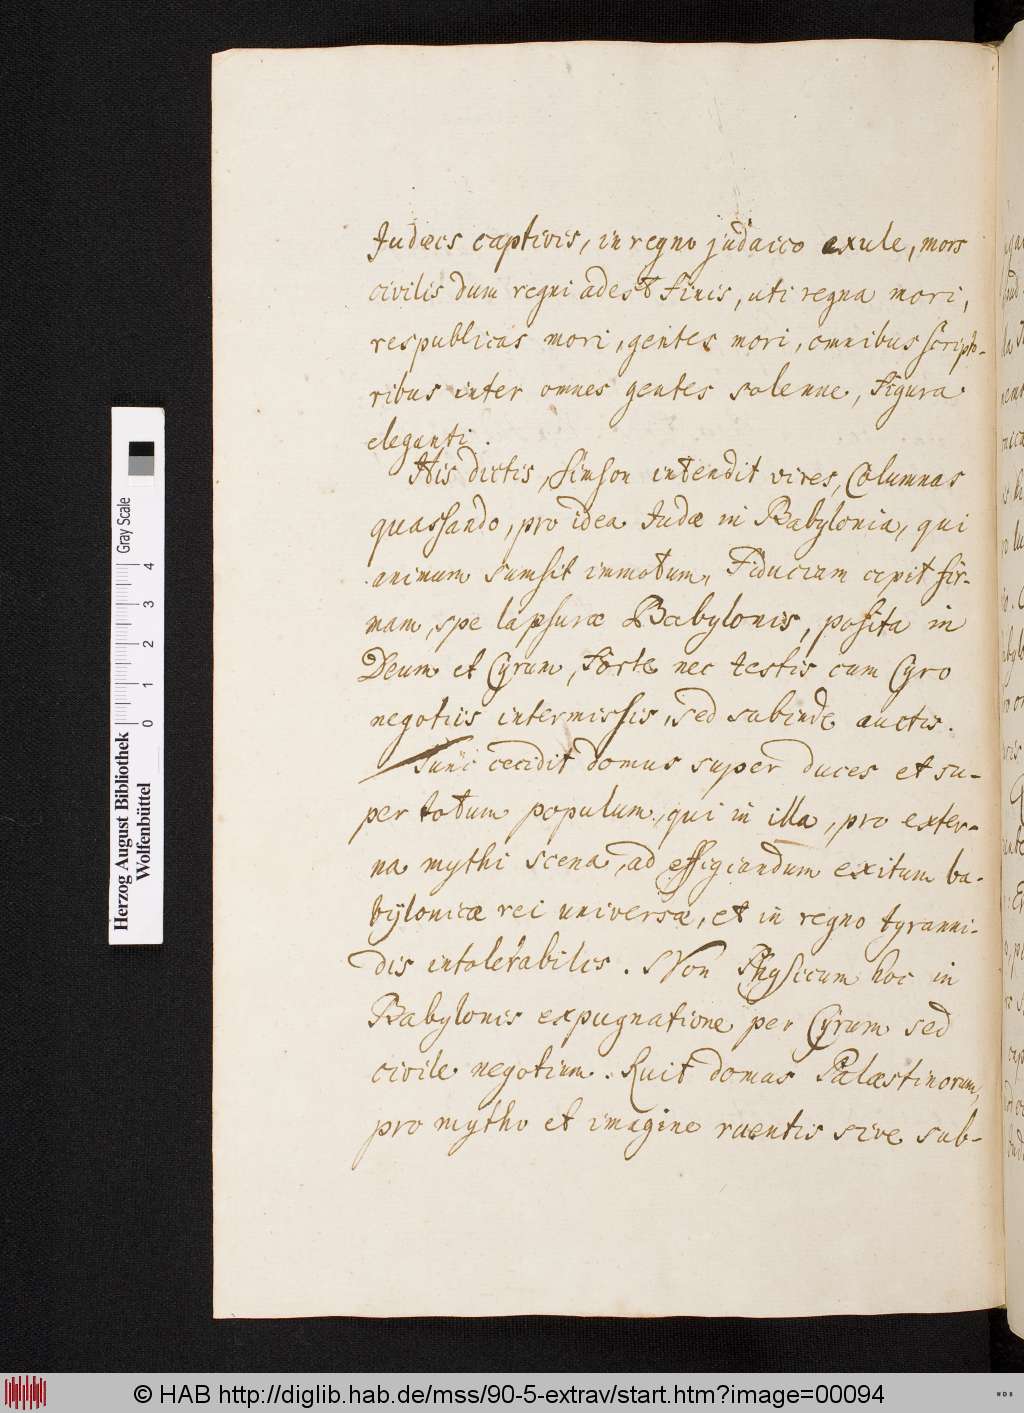 Judæis captivis, in regno judaico exule, mors
civilis dum regni adest finis, uti regna mori,
respublicas mori, gentes mori, omnibus scripto-
ribus inter omnes gentes solenne, figura
eleganti.
His dictis, Simson intendit vires, Columnas
quassando, pro idea Judæ in Babylonia, qui
animum sumsit immotum, Fiduciam cepit fir-
mam, spe lapsuræ Babylonis, posita in
Deum et Cyrum, forte nec testis cum Cyro
negotiis intermissis, sed subinde auctis.
Tunc cecidit domus super duces et su-
per totum populum, qui in illa, pro exter-
na mythi scena, ad effigiandum exitum ba-
bylonicæ rei universæ, et in regno tyranni-
dis intolerabilis. Non Physicum hoc in
Babylonis expugnatione per Cyrum sed
civile negotium. Ruit domus Palæstinorum,
pro mytho et imagine ruentis sive sub-
Herzog August Bibliothek
Wolfenbüttel
0 1 2 3 4
Gray Scale
© HAB http://diglib.hab.de/mss/90-5-extrav/start.htm?image=00094